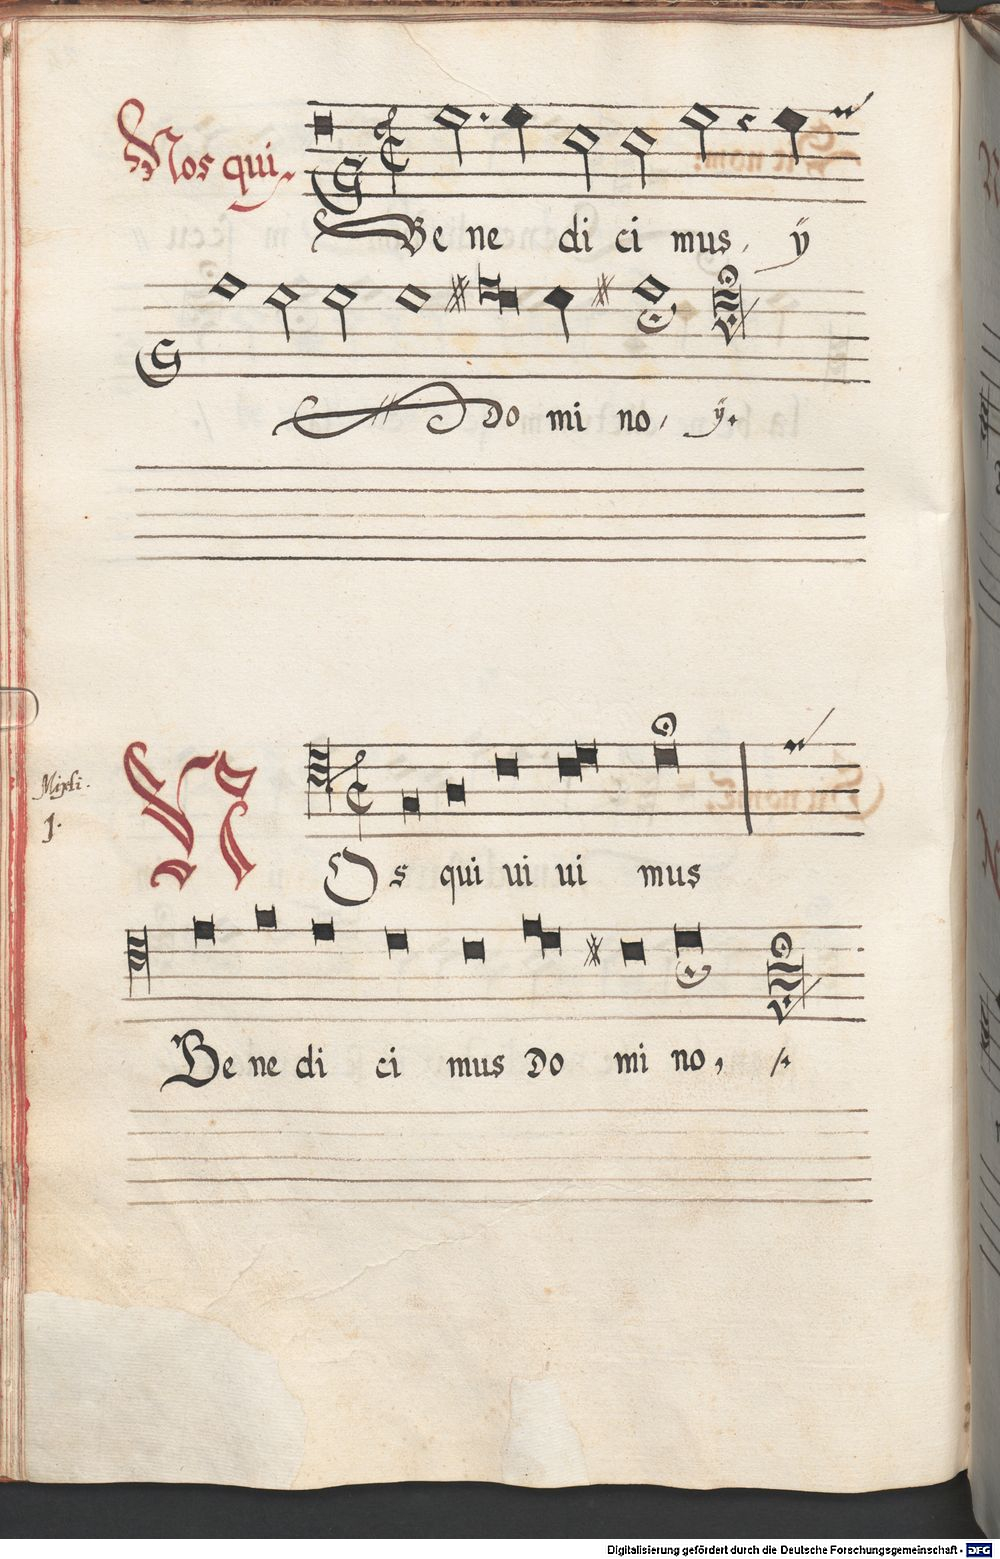 Nos qui
Be ne di ci mus, ÿ
Do mi no, ÿ.
Mixti.
1.
NOs qui ui ui mus
Be ne di ci mus Do mi no,
Digitalisierung gefördert durch die Deutsche Forschungsgemeinschaft - DFG